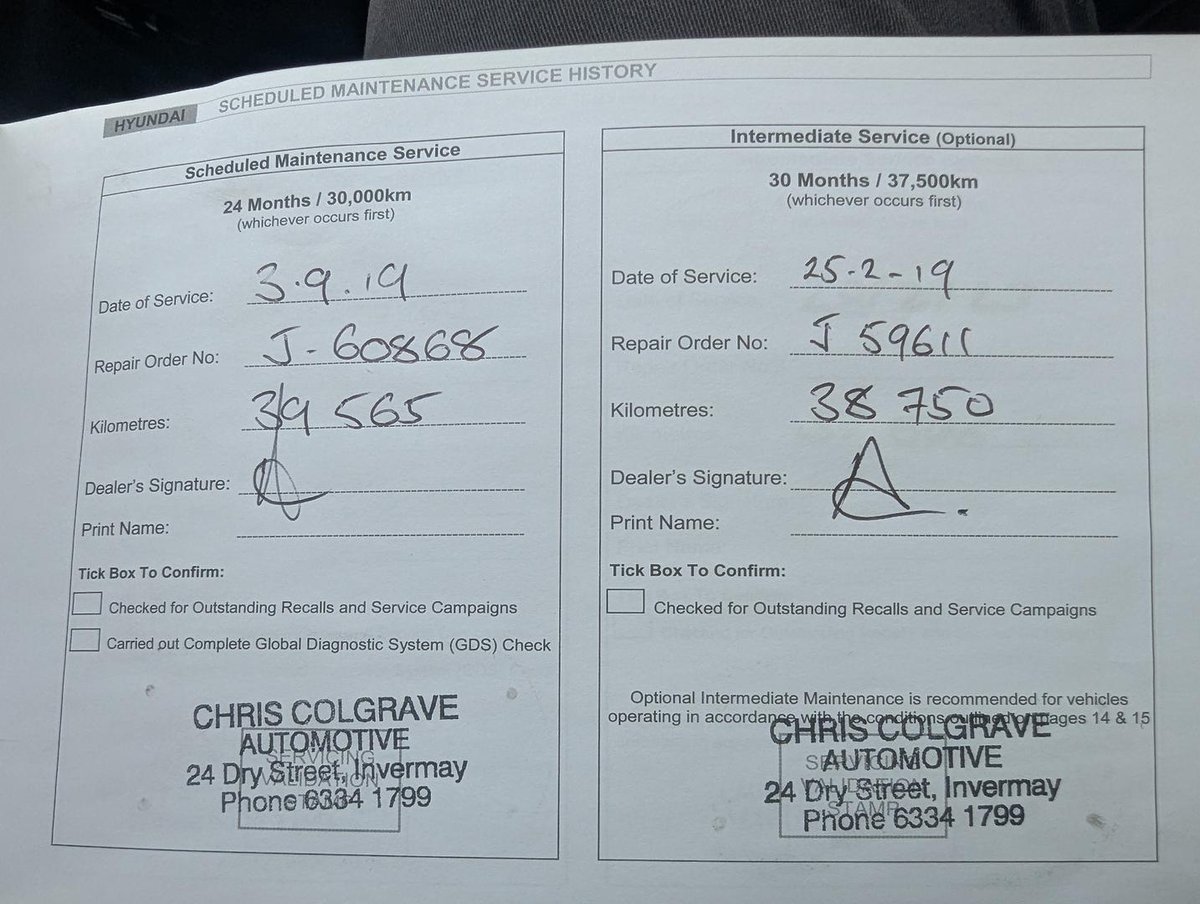 HYUNDAI SCHEDULED MAINTENANCE SERVICE HISTORY
Scheduled Maintenance Service
24 Months / 30,000km
(whichever occurs first)
Date of Service: 3.9.19
Repair Order No: J-60868
Kilometres: 39 565
Dealer's Signature:
Print Name:
Tick Box To Confirm:
Checked for Outstanding Recalls and Service Campaigns
Carried out Complete Global Diagnostic System (GDS) Check
CHRIS COLGRAVE
AUTOMOTIVE
24 Dry Street, Invermay
Phone 6334 1799
SERVICING
VALIDATION
Intermediate Service (Optional)
30 Months / 37,500km
(whichever occurs first)
Date of Service: 25-2-19
Repair Order No: J 59611
Kilometres: 38 750
Dealer's Signature:
Print Name:
Tick Box To Confirm:
Checked for Outstanding Recalls and Service Campaigns
Optional Intermediate Maintenance is recommended for vehicles
operating in accordance with the conditions outlined on pages 14 & 15
CHRIS COLGRAVE
AUTOMOTIVE
24 Dry Street, Invermay
Phone 6334 1799
VALIDATION
STAMP